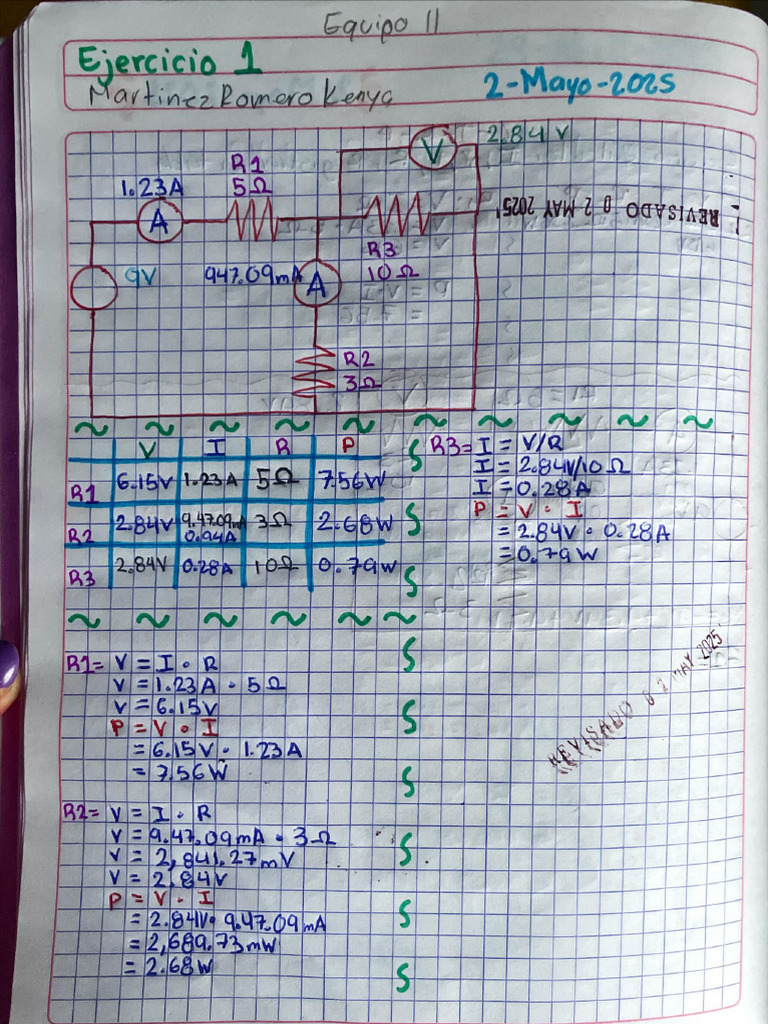 Equipo 11
Ejercicio 1
Martinez Romero Kenya
2-Mayo-2025
V 2.84 V
R1
1.23A 5Ω
A
REVISADO 0 2 MAY 2025
R3
9V 947.09mA A 10Ω
R2
3Ω
V I R P
R1 6.15V 1.23A 5Ω 7.56W
R2 2.84V 9.47.09mA 0.94A 3Ω 2.68W
R3 2.84V 0.28A 10Ω 0.79W
R3= I = V/R
I = 2.84V/10Ω
I = 0.28A
P = V · I
= 2.84V · 0.28A
= 0.79W
R1= V = I · R
V = 1.23A · 5Ω
V = 6.15V
P = V · I
= 6.15V · 1.23A
= 7.56W
REVISADO 0 2 MAY 2025
R2= V = I · R
V = 9.47.09mA · 3Ω
V = 2,841.27mV
V = 2.84V
P = V · I
= 2.84V · 9.47.09mA
= 2,689.73mW
= 2.68W